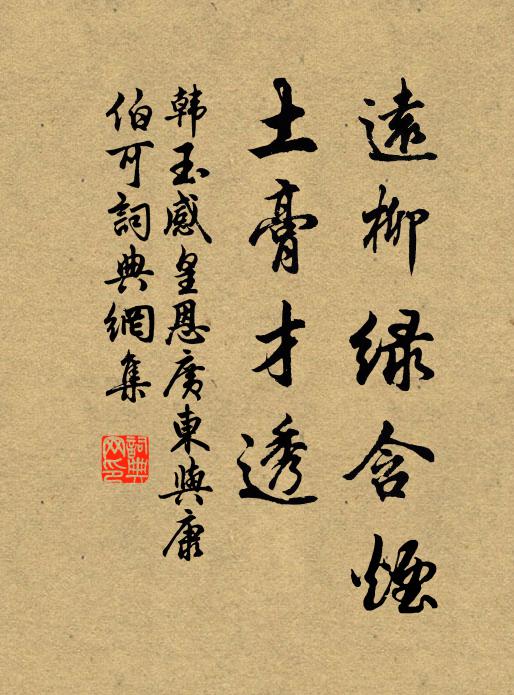 遠柳緑含煙
土膏才透
韩玉感皇恩廣東與康
伯可詞典網集
詞典
网印